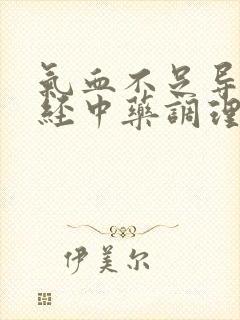 氣血不足导
経中藥調理
伊美尔